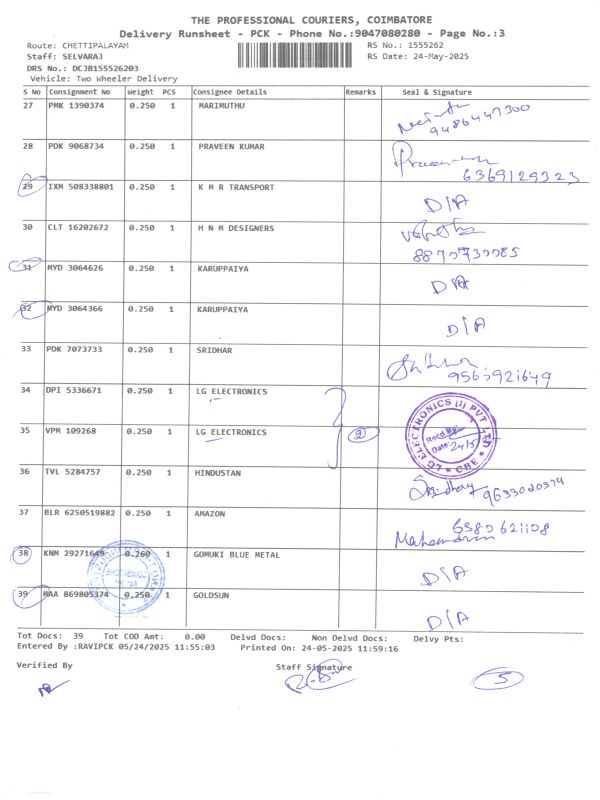 THE PROFESSIONAL COURIERS, COIMBATORE
Delivery Runsheet - PCK - Phone No.:9047080280 - Page No.:3
Route: CHETTIPALAYAM RS No.: 1555262
Staff: SELVARAJ RS Date: 24-May-2025
DRS No.: DCJB155526203
Vehicle: Two Wheeler Delivery
S No Consignment No Weight PCS Consignee Details Remarks Seal & Signature
27 PMK 1390374 0.250 1 MARIMUTHU
9486447300
28 PDK 9068734 0.250 1 PRAVEEN KUMAR
6369129323
29 IXM 508338801 0.250 1 K M R TRANSPORT D/A
30 CLT 16202672 0.250 1 H N M DESIGNERS
31 MYD 3064626 0.250 1 KARUPPAIYA D/A
32 MYD 3064366 0.250 1 KARUPPAIYA D/A
33 PDK 7073733 0.250 1 SRIDHAR
9565921649
34 DPI 5336671 0.250 1 LG ELECTRONICS
LG ELECTRONICS (I) PVT LTD CBE
Recd By:
Date: 24/5
35 VPM 109268 0.250 1 LG ELECTRONICS 2
36 TVL 5284757 0.250 1 HINDUSTAN
9633020374
37 BLR 6250519882 0.250 1 AMAZON
6380621108
38 KNM 29271649 0.260 1 GOMUKI BLUE METAL D/A
39 MAA 869805374 0.250 1 GOLDSUN D/A
Tot Docs: 39 Tot COD Amt: 0.00 Delvd Docs: Non Delvd Docs: Delvy Pts:
Entered By :RAVIPCK 05/24/2025 11:55:03 Printed On: 24-05-2025 11:59:16
Verified By Staff Signature
5